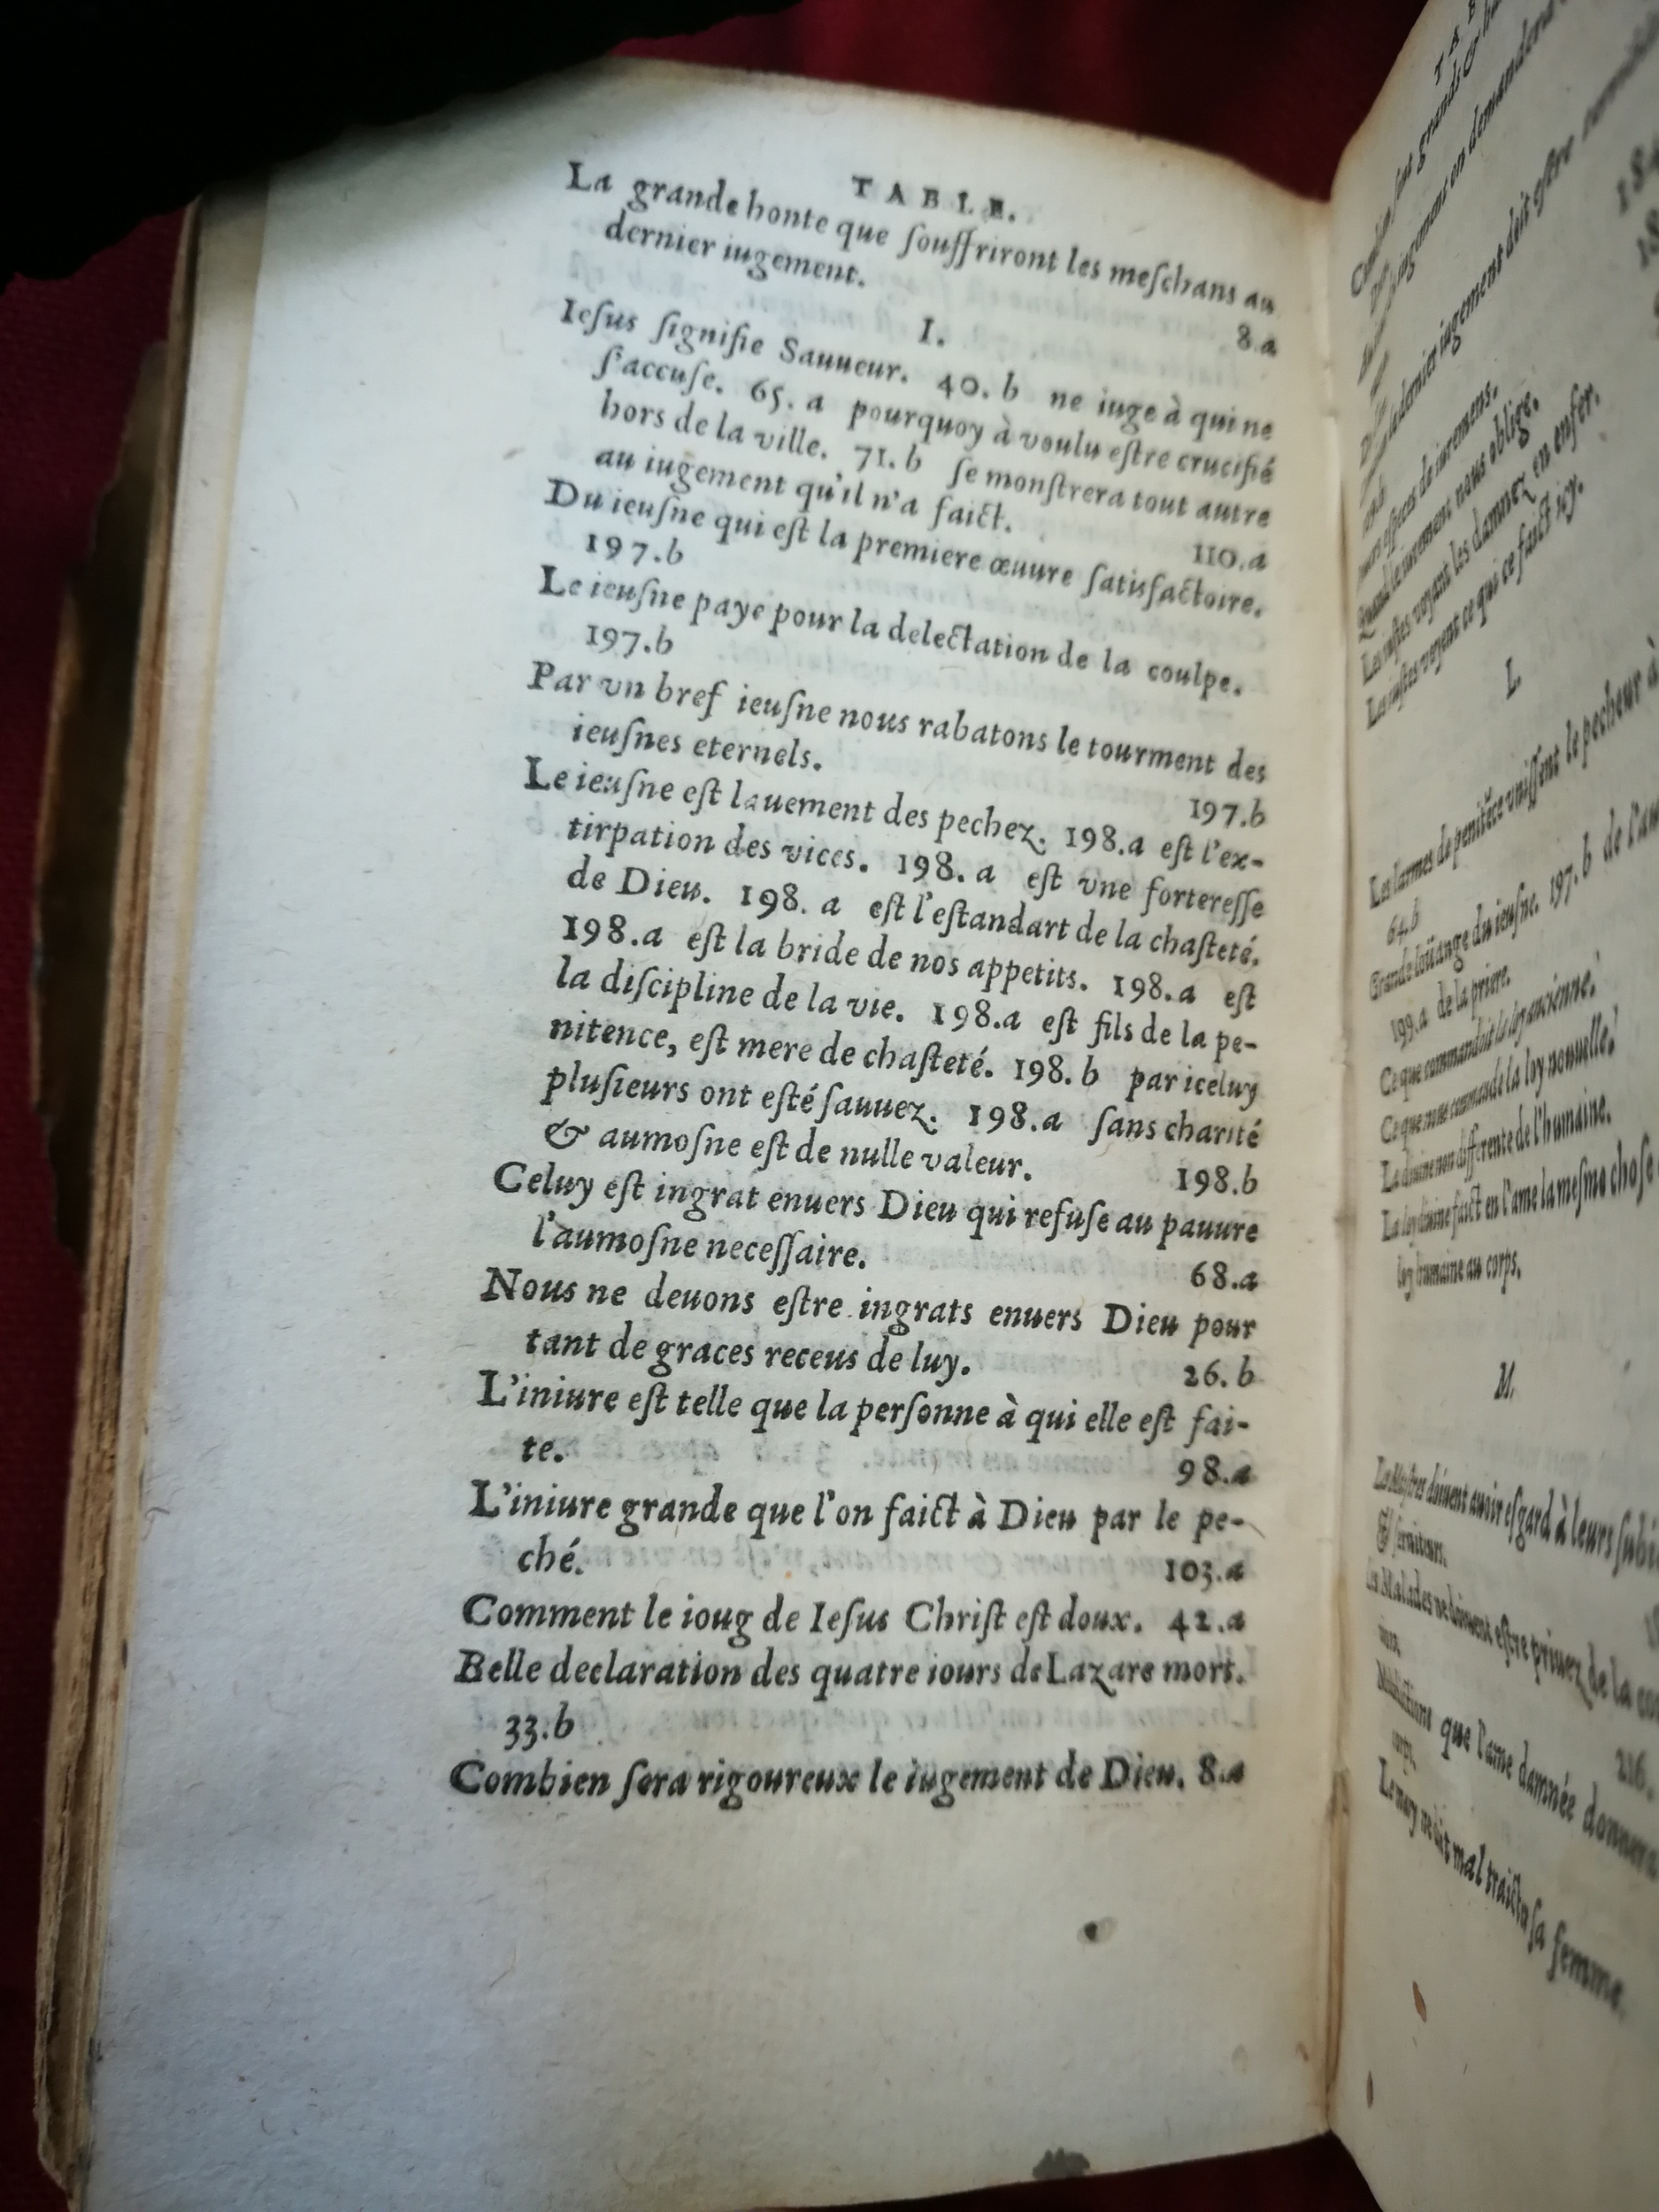 TABLE.
La grande honte que souffriront les meschans au
dernier iugement. 8.a
I.
Iesus signifie Sauueur. 40. b ne iuge à qui ne
s'accuse. 65. a pourquoy à voulu estre crucifié
hors de la ville. 71. b se monstrera tout autre
au iugement qu'il n'a faict. 110.a
Du ieusne qui est la premiere œuure satisfactoire.
197.b
Le ieusne paye pour la delectation de la coulpe.
197.b
Par vn bref ieusne nous rabatons le tourment des
ieusnes eternels. 197.b
Le ieusne est lauement des pechez. 198.a est l'ex-
tirpation des vices. 198. a est vne forteresse
de Dieu. 198. a est l'estandart de la chasteté.
198.a est la bride de nos appetits. 198.a est
la discipline de la vie. 198.a est fils de la pe-
nitence, est mere de chasteté. 198. b par iceluy
plusieurs ont esté sauuez. 198.a sans charité
& aumosne est de nulle valeur. 198.b
Celuy est ingrat enuers Dieu qui refuse au pauure
l'aumosne necessaire. 68.a
Nous ne deuons estre ingrats enuers Dieu pour
tant de graces receus de luy. 26. b
L'iniure est telle que la personne à qui elle est fai-
te. 98.a
L'iniure grande que l'on faict à Dieu par le pe-
ché. 103.a
Comment le ioug de Iesus Christ est doux. 42.a
Belle declaration des quatre iours de Lazare mort.
33.b
Combien sera rigoureux le iugement de Dieu. 8.a
dernier iugement doit estre
especes de iuremens.
Quand le iurement nous oblige.
Les iustes voyant les damnez en enfer.
Les iustes voyent ce qui ce faict icy.
L.
Les larmes de penitẽce vnissent le pecheur à
64.b
Grande loüange du ieusne. 197. b de l'au
199.a de la priere.
Ce que commandoit la loy ancienne.
Ce que nous commande la loy nouuelle.
La diuine non differente de l'humaine.
La loy diuine faict en l'ame la mesme chose
loy humaine au corps.
M.
Les Maistres doiuent auoir esgard à leurs subi
& seruiteurs.
Les Malades ne doiuent estre priuez de la
216.
que l'ame damnée donnera
corps.
Le mary ne doit mal traicter sa femme.